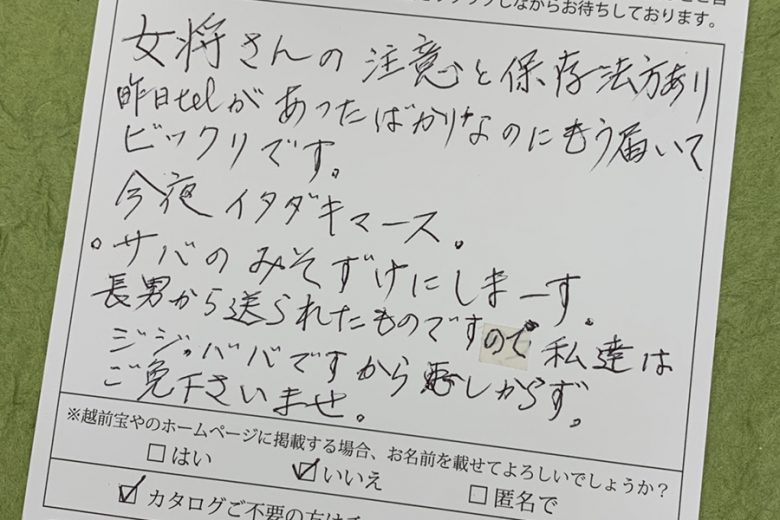 しながらお待ちしております。
女将さんの注意と保存法方あり
昨日telがあったばかりなのにもう届いて
ビックリです。
今夜イタダキマース。
。サバのみそずけにしまーす。
長男から送られたものですので私達は
ジジ。ババですから悪しからず。
ご免下さいませ。
※越前宝やのホームページに掲載する場合、お名前を載せてよろしいでしょうか?
□はい ☑いいえ □匿名で
☑カタログご不要の方は